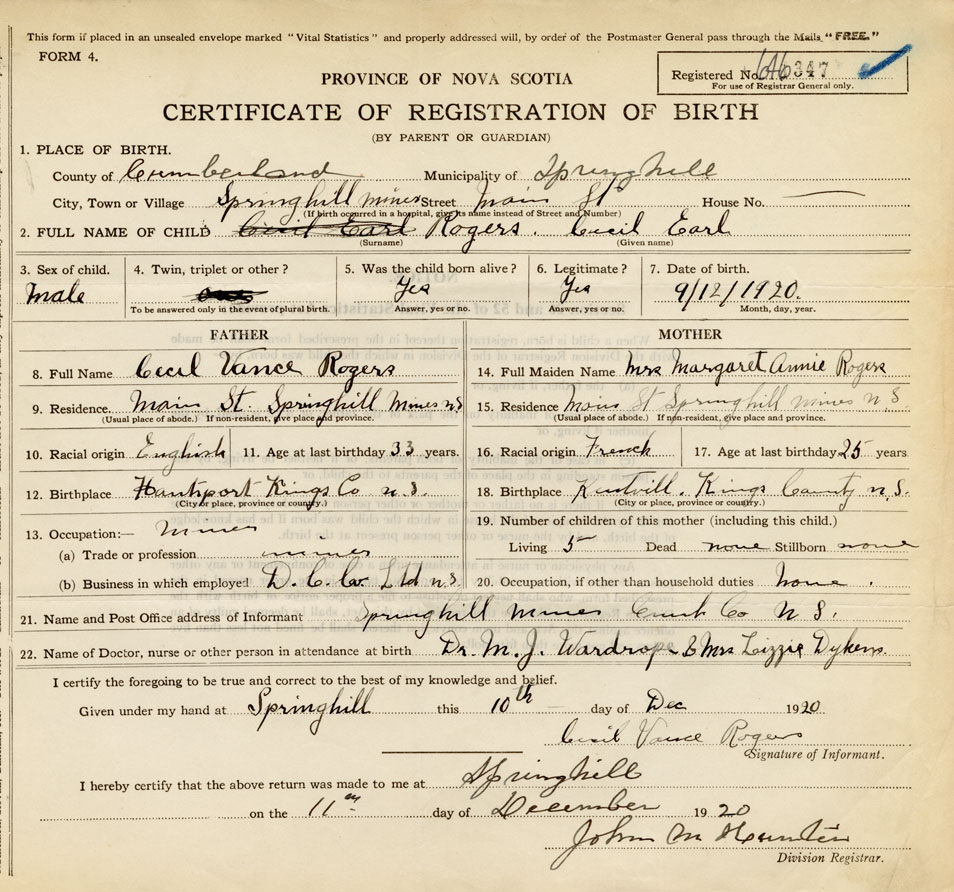 This form if placed in an unsealed envelope marked "Vital Statistics" and properly addressed will, by order of the Postmaster General pass through the Mails "FREE."
FORM 4.
Registered No. 347
For use of Registrar General only.
PROVINCE OF NOVA SCOTIA
CERTIFICATE OF REGISTRATION OF BIRTH
(BY PARENT OR GUARDIAN)
1. PLACE OF BIRTH.
County of Cumberland Municipality of Springhill
City, Town or Village Springhill mines Street Main St House No.
(If birth occurred in a hospital, give its name instead of Street and Number)
2. FULL NAME OF CHILD Cecil Earl Rogers. Cecil Earl
(Surname) (Given name)
3. Sex of child. 4. Twin, triplet or other? 5. Was the child born alive? 6. Legitimate? 7. Date of birth.
Male Yes Yes 9/12/1920.
To be answered only in the event of plural birth. Answer, yes or no. Answer, yes or no. Month, day, year.
FATHER MOTHER
8. Full Name Cecil Vance Rogers 14. Full Maiden Name Mrs Margaret Annie Rogers
9. Residence. Main St Springhill Mines N.S 15. Residence Main St Springhill mines N.S.
(Usual place of abode.) If non-resident, give place and province. (Usual place of abode.) If non-resident, give place and province.
10. Racial origin English 11. Age at last birthday 33 years. 16. Racial origin French 17. Age at last birthday 25 years
12. Birthplace Hantsport Kings Co N.S. 18. Birthplace Kentvill. Kings County N.S.
(City or place, province or country.) (City or place, province or country.)
13. Occupation:— Miner 19. Number of children of this mother (including this child.)
(a) Trade or profession miner Living 5 Dead none Stillborn none
(b) Business in which employed D. C. Co. Ltd N.S. 20. Occupation, if other than household duties None.
21. Name and Post Office address of Informant Springhill mines Co N S.
22. Name of Doctor, nurse or other person in attendance at birth Dr. M. J. Wardrope & Mrs Lizzie Dykens.
I certify the foregoing to be true and correct to the best of my knowledge and belief.
Given under my hand at Springhill this 10th day of Dec 1920
Cecil Vance Rogers
Signature of Informant.
I hereby certify that the above return was made to me at Springhill
on the 11th day of December 1920
John M Hunter
Division Registrar.